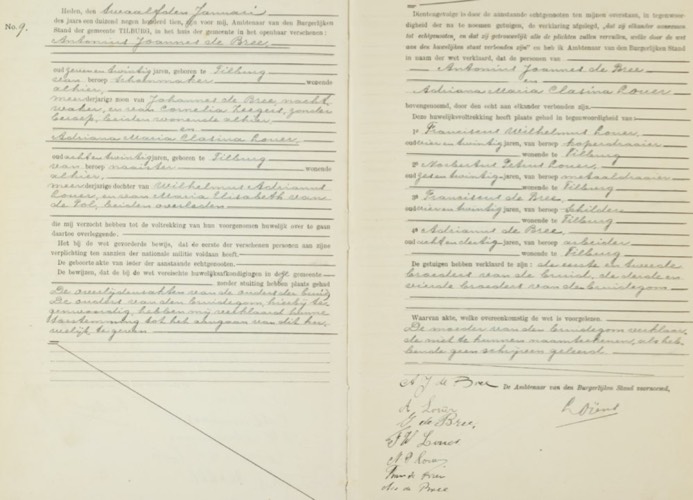 No. 9.
Heden, den twaalfden Januari
des jaars een duizend negen honderd tien, zijn voor mij, Ambtenaar van den Burgerlijken
Stand der gemeente TILBURG, in het huis der gemeente in het openbaar verschenen:
Antonius Joannes de Bree,
oud zeven en twintig jaren, geboren te Tilburg
van beroep schoenmaker wonende
alhier,
meerderjarige zoon van Johannes de Bree, nacht
waker, en van Cornelia Zeegers, zonder
beroep, beiden wonende alhier
en
Adriana Maria Clasina Loner,
oud acht en twintig jaren, geboren te Tilburg
van beroep naaister wonende
alhier,
meerderjarige dochter van Wilhelmus Adrianus
Loner, en van Maria Elisabeth van
de Pol, beiden overleden
die mij verzocht hebben tot de voltrekking van hun voorgenomen huwelijk over te gaan
daartoe overleggende.
Het bij de wet gevorderde bewijs, dat de eerste der verschenen personen aan zijne
verplichting ten aanzien der nationale militie voldaan heeft.
De geboorteakte van ieder der aanstaande echtgenooten.
De bewijzen, dat de bij de wet vereischte huwelijksafkondigingen in deze gemeente
zonder stuiting hebben plaats gehad
De overlijdensakten van de ouders der bruid
De ouders van den bruidegom, hierbij te
genwoordig, hebben mij verklaard hunne
toestemming tot het aangaan van dit hu
welijk te geven
Dientengevolge is door de aanstaande echtgenooten ten mijnen overstaan, in tegenwoor-
digheid der na te noemen getuigen, de verklaring afgelegd, dat zij elkander aannemen
tot echtgenooten, en dat zij getrouwelijk alle de plichten zullen vervullen, welke door de wet
aan den huwelijken staat verbonden zijn en heb ik Ambtenaar van den Burgerlijken Stand
in naam der wet verklaard, dat de personen van
Antonius Joannes de Bree
en
Adriana Maria Clasina Loner
bovengenoemd, door den echt aan elkander verbonden zijn.
Deze huwelijksvoltrekking heeft plaats gehad in tegenwoordigheid van:
1° Franciscus Wilhelmus Loner,
oud vier en twintig jaren, van beroep koperdraaier
wonende te Tilburg
2° Norbertus Petrus Loner,
oud zes en twintig jaren, van beroep metaaldraaier
wonende te Tilburg
3° Franciscus de Bree,
oud vier en twintig jaren, van beroep schilder
wonende te Tilburg
4° Adrianus de Bree,
oud acht en dertig jaren, van beroep arbeider
wonende te Tilburg
De getuigen hebben verklaard te zijn: de eerste en tweede
broeders van de bruid, de derde en
vierde broeders van de bruidegom
Waarvan akte, welke overeenkomstig de wet is voorgelezen.
De moeder van den bruidegom verklaar
de niet te kunnen naamteekenen, als heb
bende geen schrijven geleerd.
A J de Bree
De Ambtenaar van den Burgerlijken Stand voornoemd,
A Loner
J de Bree
F W Loner
N P Loner
de Bree